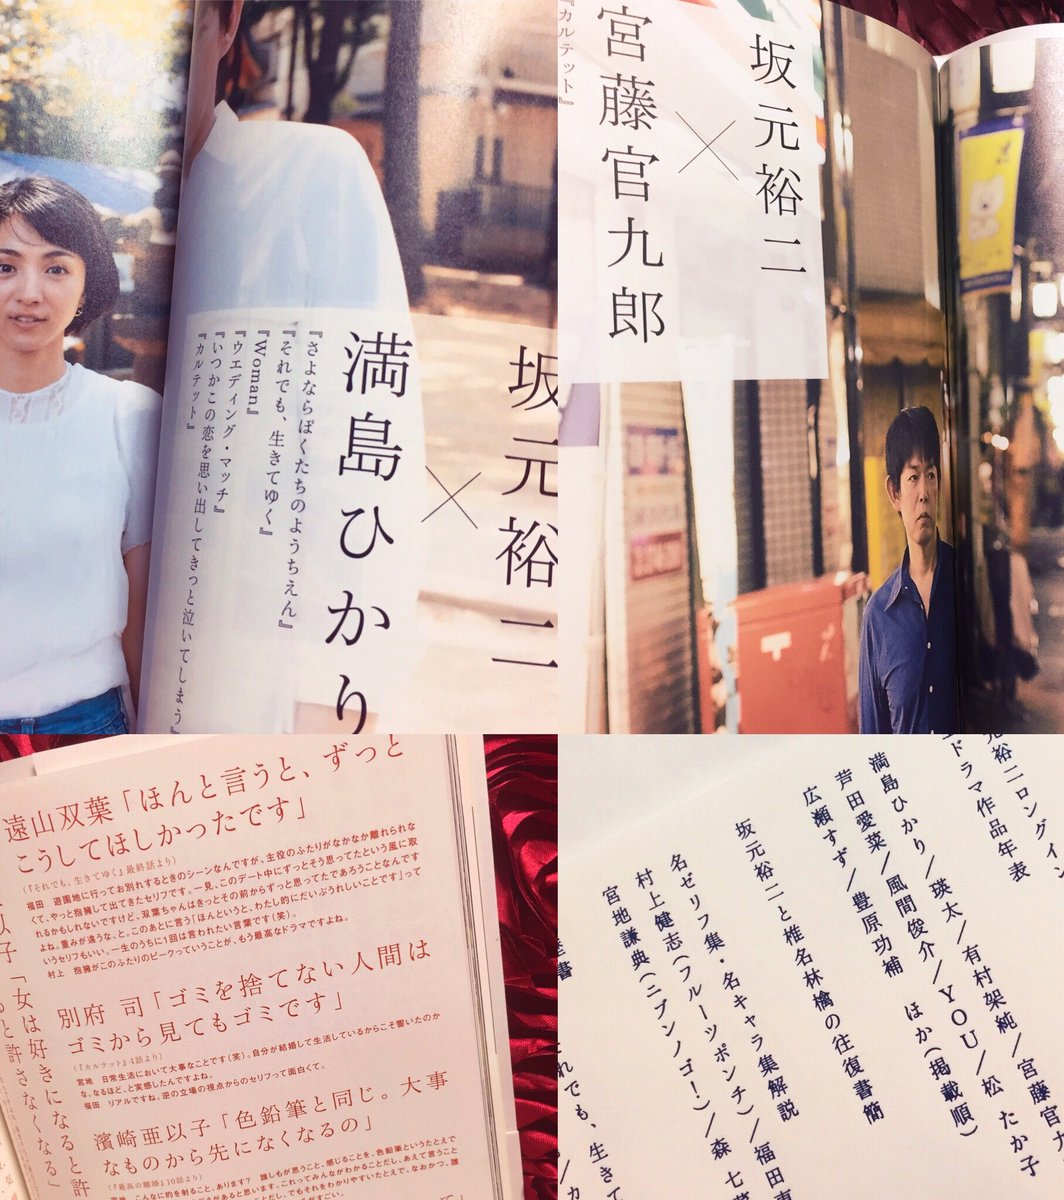 満島ひかり
×
坂元裕二
『さよならぼくたちのようちえん』
『それでも、生きてゆく』
『Woman』
『ウエディング・マッチ』
『いつかこの恋を思い出してきっと泣いてしまう』
『カルテット』
坂元裕二
×
宮藤官九郎
『カルテット』
遠山双葉「ほんと言うと、ずっと
こうしてほしかったです」
(『それでも、生きてゆく』最終話より)
福田　遊園地に行ってお別れするときのシーンなんですが、主役のふたりがなかなか離れられな
くて、やっと抱擁して出てきたセリフです。一見、このデート中にずっとそう思ってたという風に取
れるかもしれないですけど、双葉ちゃんはきっとその前からずっと思ってたであろうことなんです
よね。重みが違うな、と。このあとに言う「ほんというと、わたし的にだいぶうれしいことです」って
いうセリフもいい。一生のうちに1回は言われたい言葉です(笑)。
村上　抱擁がこのふたりのピークっていうことが、もう最高なドラマですよね。
別府 司「ゴミを捨てない人間は
ゴミから見てもゴミです」
(『カルテット』4話より)
宮地　日常生活において大事なことです(笑)。自分が結婚して生活しているからこそ響いたのか
な。なるほど、と実感したんですよね。
福田　リアルですね。逆の立場の視点からのセリフって面白くて。
濱崎亜以子「色鉛筆と同じ。大事
なものから先になくなるの」
(『最高の離婚』10話より)
宮地　こんなに的を射ること、あります?　誰しもが思うこと、感じることを、色鉛筆というたとえで
「女は好きになると許
ると許さなくなる」
元裕二ロングイン
ドラマ作品年表
満島ひかり/瑛太/有村架純/宮藤官九
芦田愛菜/風間俊介/YOU/松 たか子
広瀬すず/豊原功補　ほか(掲載順)
坂元裕二と椎名林檎の往復書簡
名ゼリフ集・名キャラ集解説
村上健志(フルーツポンチ)/福田
宮地謙典(ニブンノゴ!)/森 七